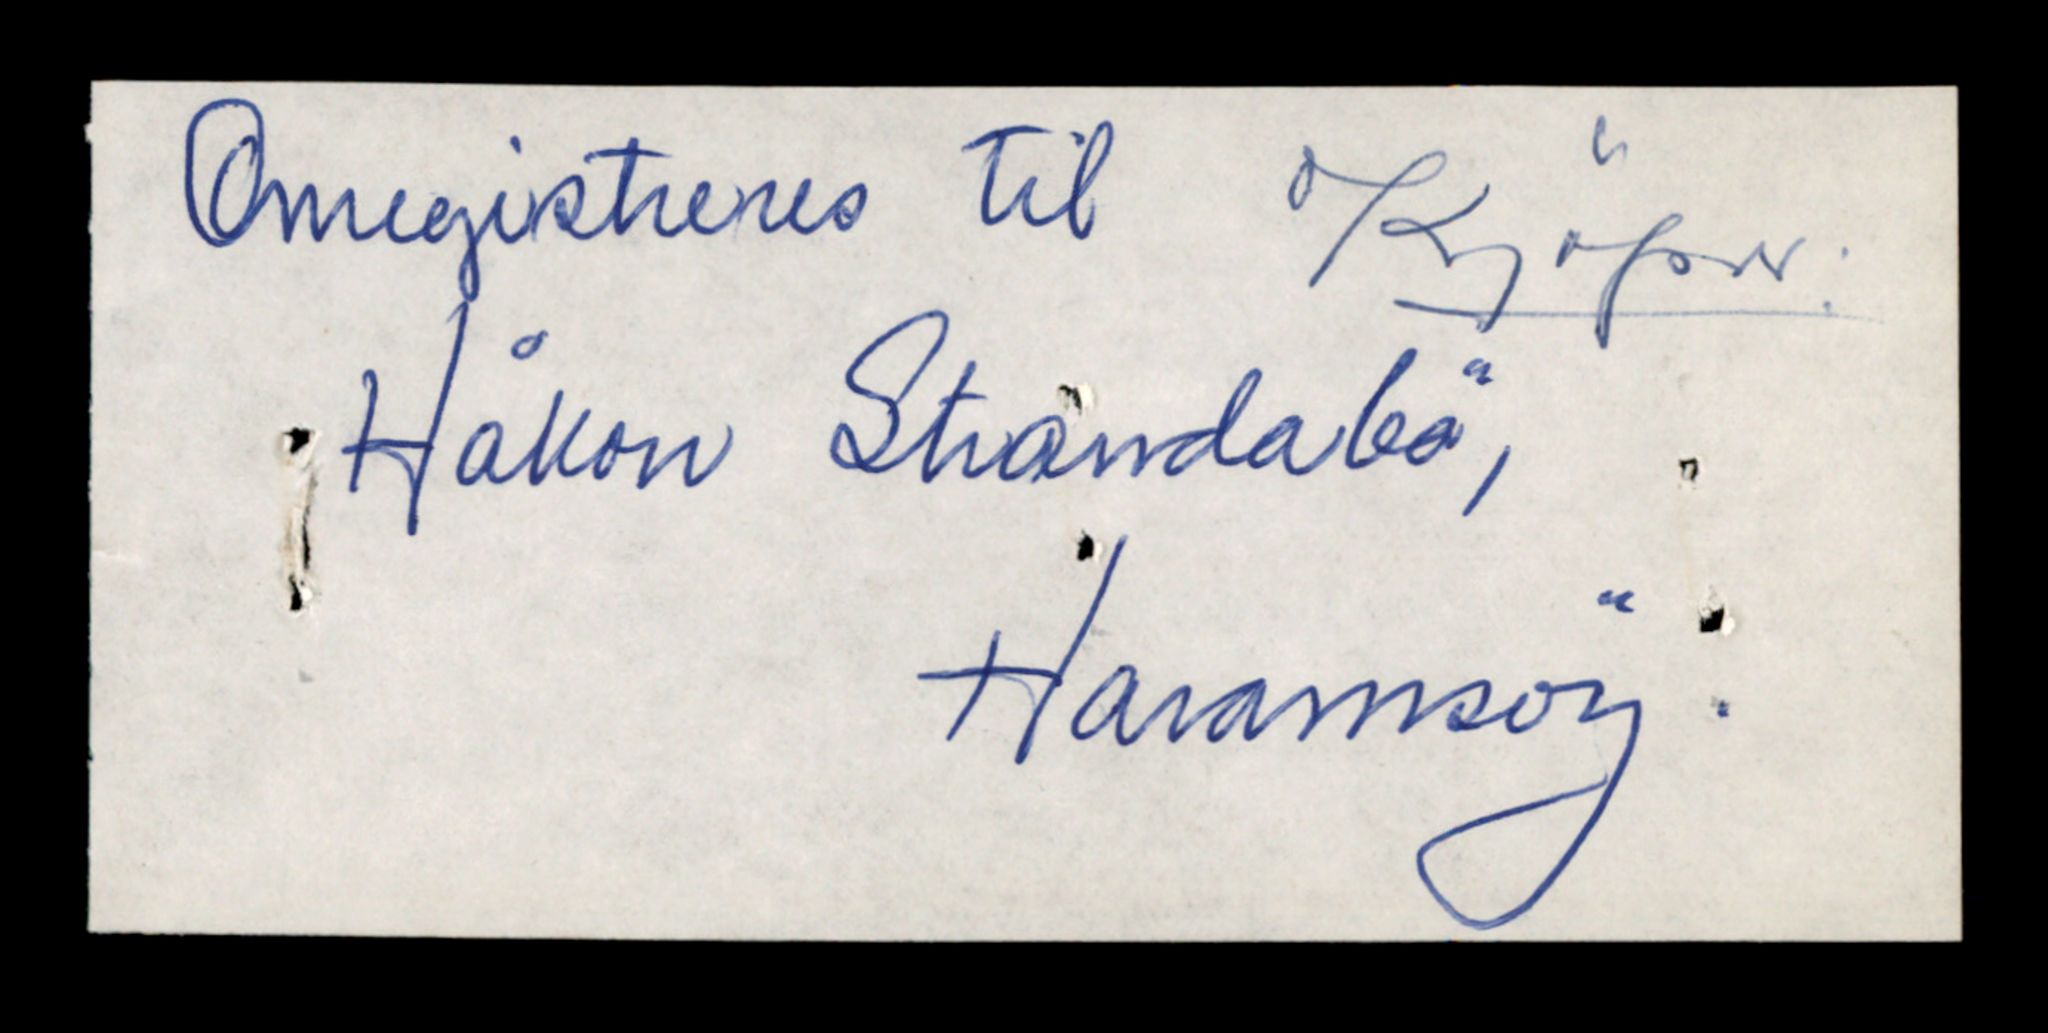 Omregistreres til Kjöper:
Håkon Strandabö,
Haramsöy.